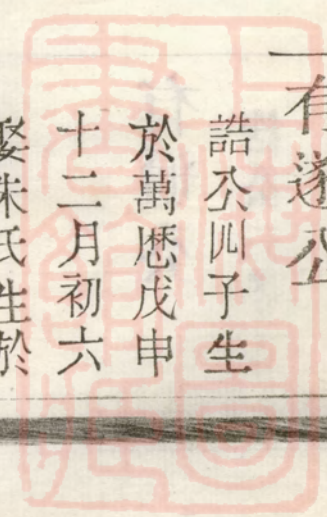 一有遂公
誥公四子生
於萬歷戊申
十二月初六
娶朱氏生於